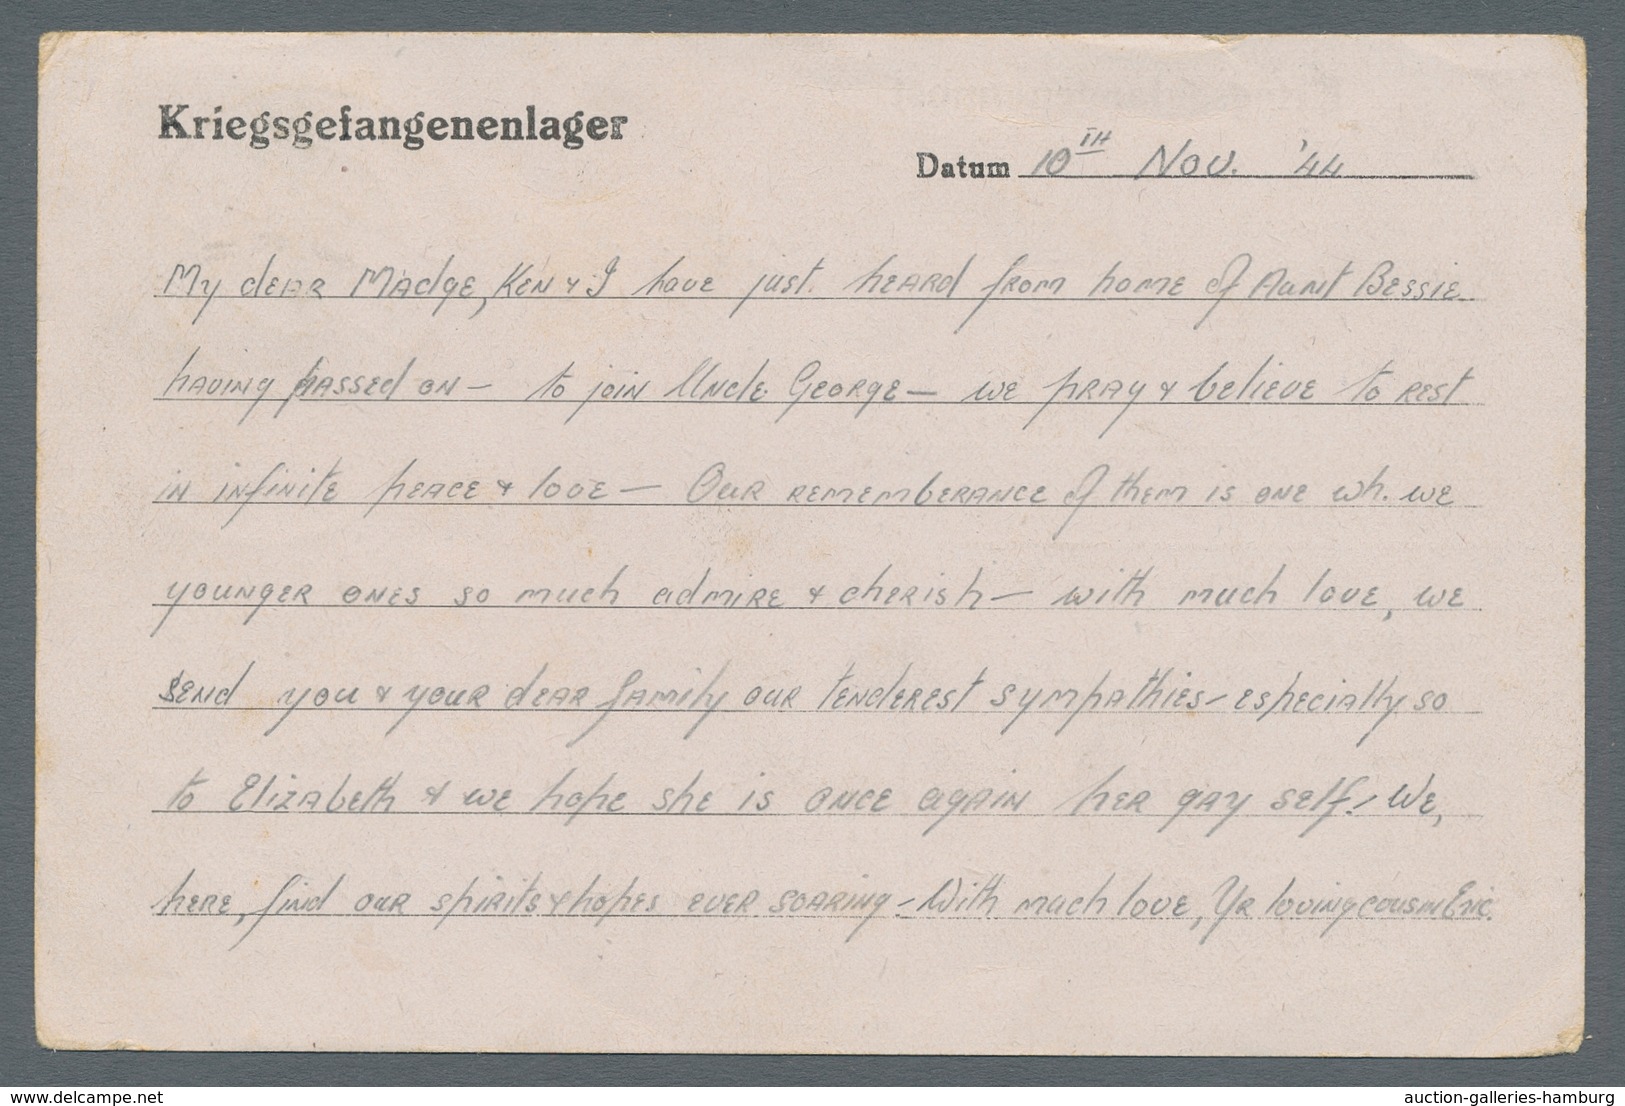 Kriegsgefangenenlager
Datum 10TH Nov. '44
My dear Madge, Ken & I have just heard from home of Aunt Bessie
having passed on — to join Uncle George — we pray & believe to rest
in infinite peace & love — Our rememberance of them is one wh. we
younger ones so much admire & cherish — with much love, we
send you & your dear family our tenderest sympathies - especially so
to Elizabeth & we hope she is once again her gay self. - We,
here, find our spirits & hopes ever soaring - With much love, Yr loving cousin Eric.
delcampe.net
auction-galleries-hamburg